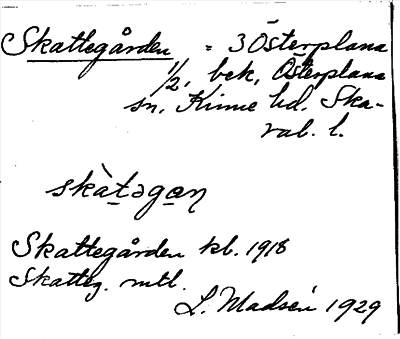 Skattegården = 3 Österplana
1/2, bek, Österplana
sn, Kinne hd. Ska-
rab. l.
skàtəgan
Skattegården kb. 1918
Skatteg. mtl.
L. Madsén 1929